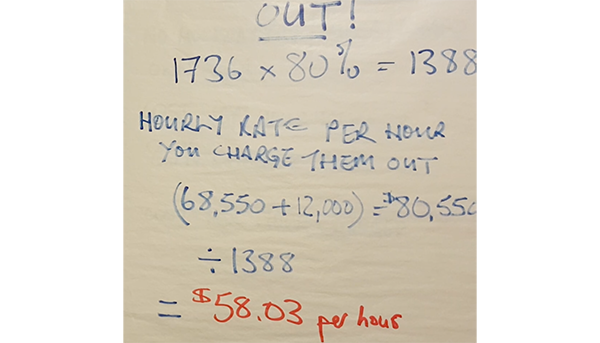 OUT!
1736 × 80% = 1388
HOURLY RATE PER HOUR
YOU CHARGE THEM OUT
(68,550 + 12,000) = $80,550
÷ 1388
= $58.03 per hour